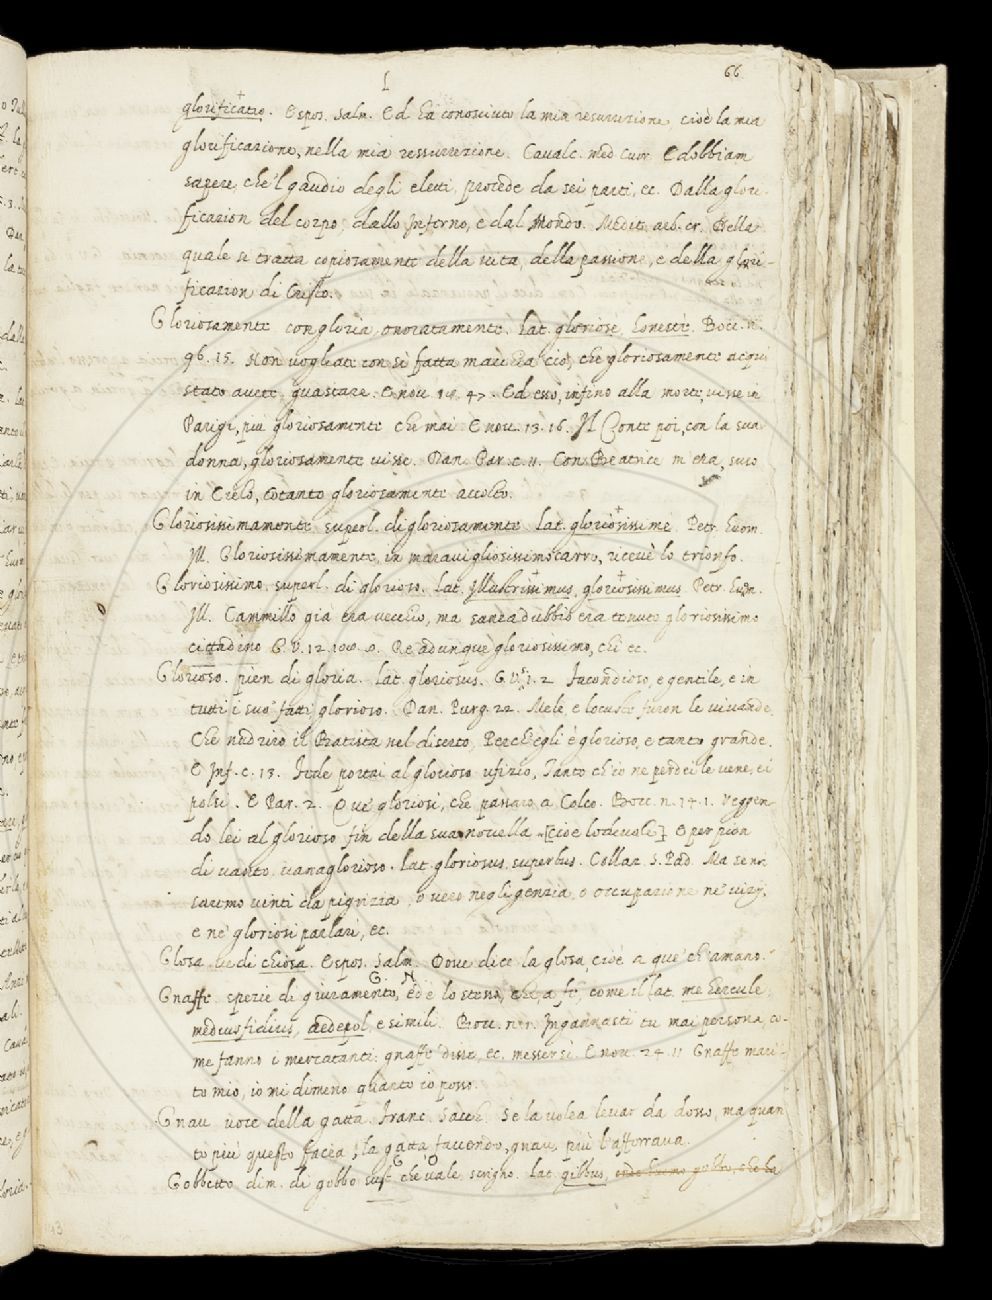 L
66
glorificatio. Espos. Salm. Ed ha conosciuto la mia resurrezione, cioè la mia
glorificazione, nella mia ressurrezione. Cavalc. med. cuor. E dobbiam
sapere, che 'l gaudio degli eletti, procede da sei parti, ec. Dalla glori-
ficazion del corpo, dallo Inferno, e dal Mondo. Medit. arb. cr. Nella
quale si tratta copiosamente della vita, della passione, e della glori-
ficazion di Cristo.
Gloriosamente con gloria, onoratamente. Lat. gloriose, honeste. Bocc. n.
96. 15. Non vogliate con sì fatta macchia ciò, che gloriosamente acqui
stato avete, guastare. E nov. 18. 47. Ed esso, infino alla morte, visse in
Parigi, più gloriosamente che mai. E nov. 13. 16. Il Conte poi, con la sua
donna, gloriosamente visse. Dan. Par. c. 11. Con Beatrice m'era, suso
in Cielo, cotanto gloriosamente accolto.
Gloriosissimamente superl. di gloriosamente. Lat. gloriosissime. Petr. huom.
Ill. Gloriosissimamente, in maravigliosissimo carro, ricevè lo trionfo.
Gloriosissimo. superl. di glorioso. Lat. Illustrissimus, gloriosissimus. Petr. huom.
Ill. Cammillo già era vecchio, ma sanza dubbio era tenuto gloriosissimo
cittadino G. V. 12. 108. 8. Re adunque gloriosissimo, che ec.
Glorioso. pien di gloria. Lat. gloriosus. G. V. 5. 1. 2 Facondioso, e gentile, e in
tutti i suo' fatti glorioso. Dan. Purg. 22. Mele, e locuste furon le vivande,
Che nudriro il Batista nel diserto, Perch'egli è glorioso, e tanto grande.
E Inf. c. 13. Fede portai al glorioso ufizio, Tanto ch'io ne perdei le vene, e i
polsi. E Par. 2. Que' gloriosi, che passaro a Colco. Bocc. n. 14. 1. Veggen-
do lei al glorioso fin della sua novella [cioè lodevole] E per pien
di vanto, vanaglorioso. Lat. gloriosus, superbus. Collaz. S. Pad. Ma se noi
saremo vinti da pigrizia, o vero negligenzia, o occupazione ne' vizj,
e ne' gloriosi parlari, ec.
Glosa vedi chiosa. Espos. Salm. Dove dice la glosa, cioè a que' ch'amano.
G N
Gnaffe. spezie di giuramento, ed è lo stesso, che a fe, come il lat. mehercule,
mediusfidius, aedepol, e simili. Bocc. n. Ingannasti tu mai persona, co-
me fanno i mercatanti: gnaffe disse, ec. messer sì. E nov. 24. 11 Gnaffe mari-
to mio, io mi dimeno quanto io posso.
Gnau voce della gatta. Franc. Sacch. Se la volea levar da dosso, ma quan
to più questo facea, la gatta, facendo, gnau, più l'afferrava.
G O
Gobbetto dim. di gobbo sust. che vale scrigno. Lat. gibbus,